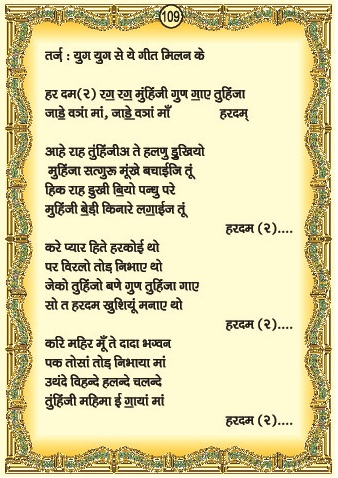 109
तर्ज : युग युग से ये गीत मिलन के
हर दम(२) रग॒ रग॒ मुंहिंजी गुण गा॒ए तुहिंजा
जाडे॒ वञां मां, जाडे॒ वञां माँ हरदम्
आहे राह तुंहिंजीअ ते हलणु डु॒खियो
मुहिंजा सत्गुरू मूंखे बचाईजि तूं
हिक राह डु॒खी बि॒यो पन्धु परे
मुहिंजी बे॒डी किनारे लगा॒ईज तूं
हरदम (२)....
करे प्यार हिते हरकोई थो
पर विरलो तोड़ निभाए थो
जेको तुहिंजो बणे गुण तुहिंजा गाए
सो त हरदम खुशियूं मनाए थो
हरदम (२)....
करि महिर मूँ ते दादा भग्वन
पक तोसां तोड़ निभाया मां
उथंदे विहन्दे हलन्दे चलन्दे
तुंहिंजी महिमा ई गा॒यां मां
हरदम (२)....